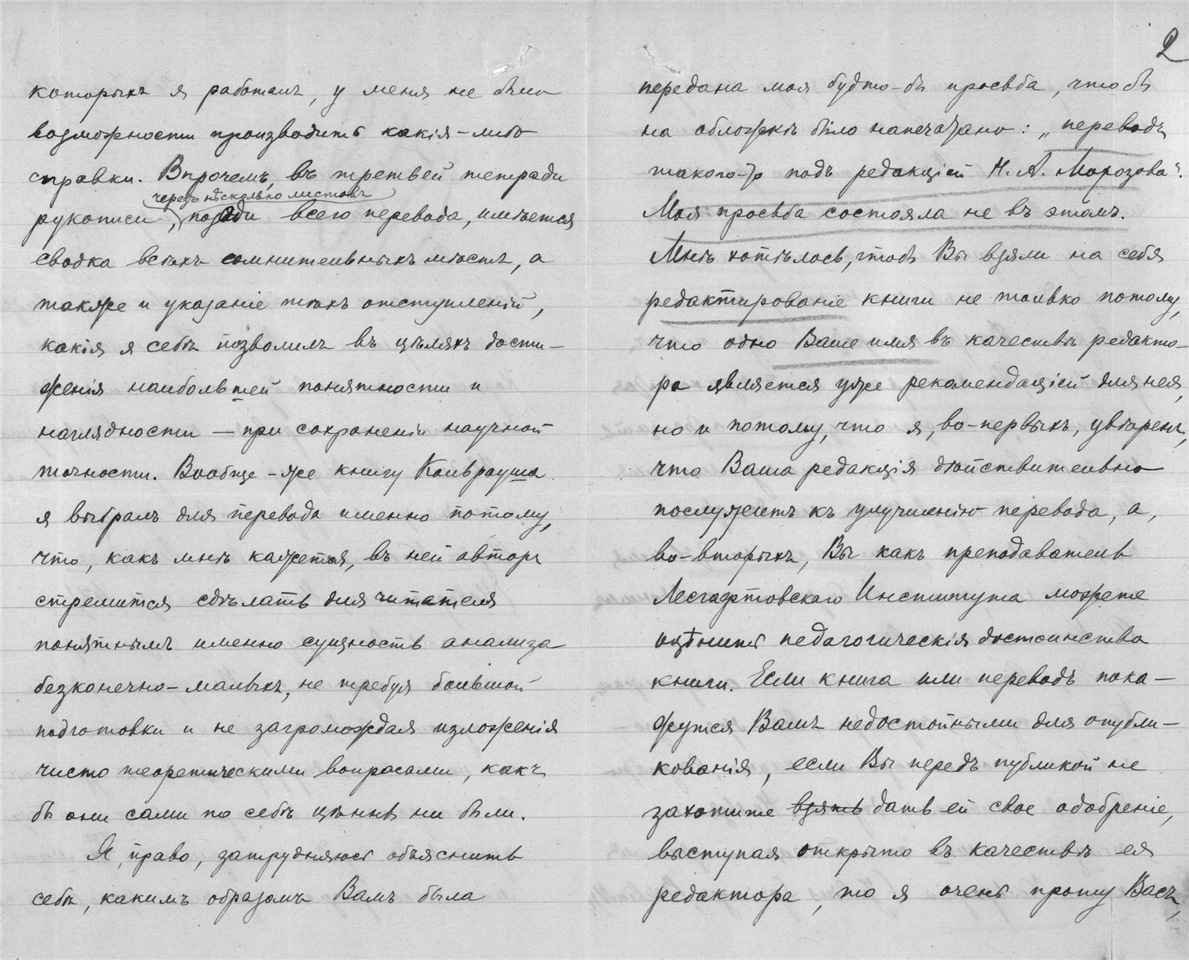 которыхъ я работалъ, у меня не было
возможности производить какія-либо
справки. Впрочемъ, въ третьей тетради
черезъ нѣсколько листовъ
рукописи, позади всего перевода, имѣется
сводка всѣхъ сомнительныхъ мѣстъ, а
также и указаніе тѣхъ отступленій,
какія я себѣ позволилъ въ цѣляхъ дости-
женія наибольшей понятности и
наглядности — при сохраненіи научной
точности. Вообще-же книгу Кольрауша
я выбралъ для перевода именно потому,
что, какъ мнѣ кажется, въ ней авторъ
стремится сдѣлать для читателя
понятнымъ именно сущность анализа
безконечно-малыхъ, не требуя большой
подготовки и не загромождая изложенія
чисто теоретическими вопросами, какъ
бы они сами по себѣ цѣнны ни были.
Я, право, затрудняюсь объяснить
себѣ, какимъ образомъ Вамъ была
2
передана моя будто-бы просьба, чтобы
на обложкѣ было напечатано: „переводъ
такого-то подъ редакціей Н. А. Морозова".
Моя просьба состояла не въ этомъ.
Мнѣ хотѣлось, чтобъ Вы взяли на себя
редактированіе книги не только потому,
что одно Ваше имя въ качествѣ редакто-
ра является уже рекомендаціей для нея,
но и потому, что я, во-первыхъ, увѣренъ,
что Ваша редакція дѣйствительно
послужитъ къ улучшенію перевода, а,
во-вторыхъ, Вы какъ преподаватель
Лесгафтовскаго Института можете
оцѣнить педагогическія достоинства
книги. Если книга или переводъ пока-
жутся Вамъ недостойными для опубли-
кованія, если Вы передъ публикой не
захотите взять дать ей свое одобреніе,
выступая открыто въ качествѣ ея
редактора, то я очень прошу Васъ,